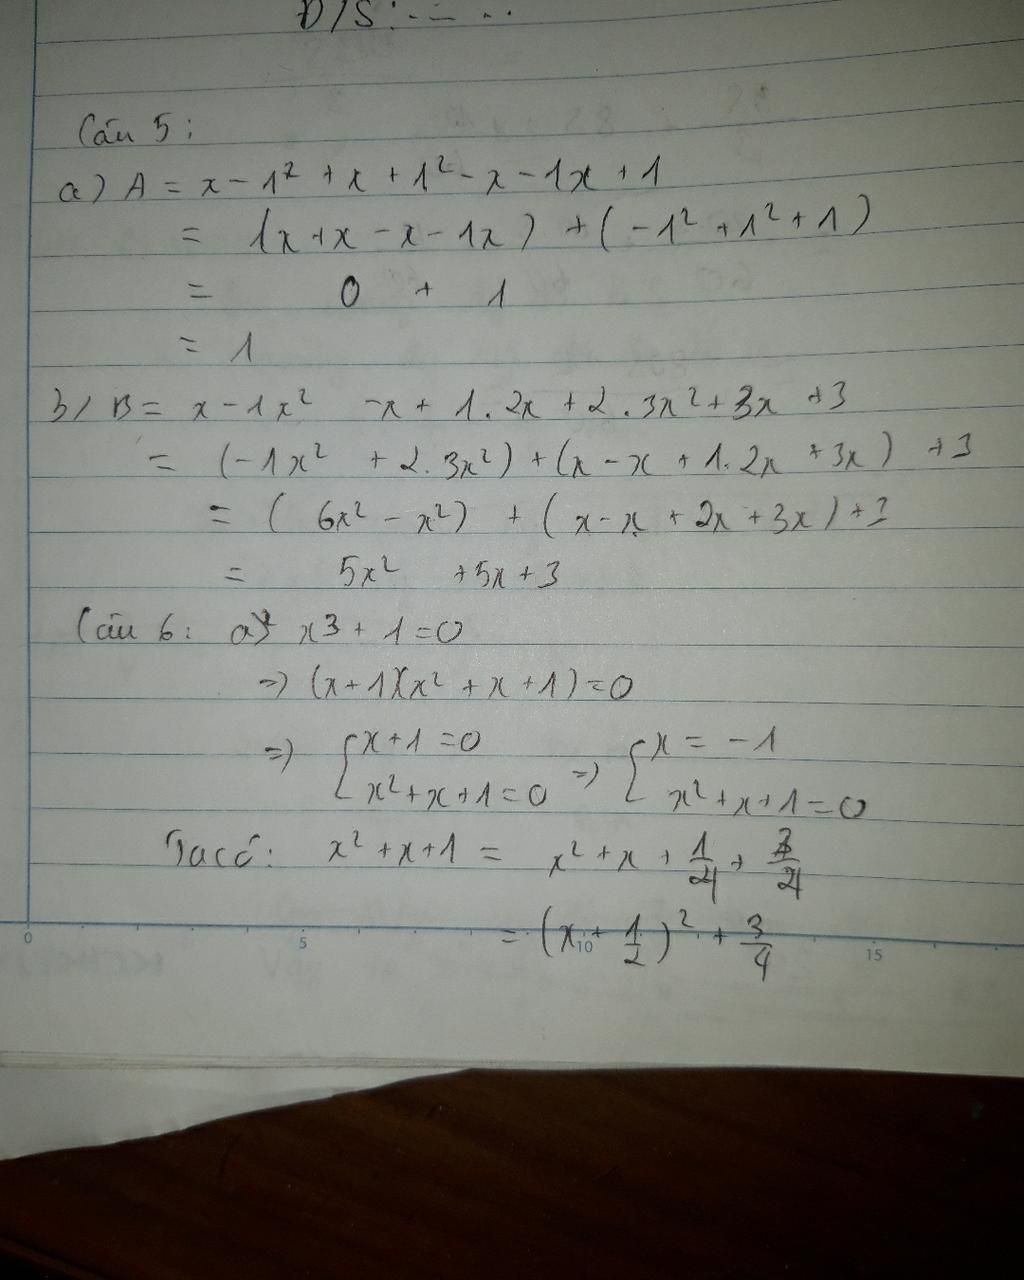 Đ/S: - — - .
Câu 5:
a) A = x - 1² + x + 1² - x - 1x + 1
= (x + x - x - 1x) + (-1² + 1² + 1)
= 0 + 1
= 1
b/ B = x - 1x² - x + 1.2x + 2.3x² + 3x + 3
= (-1x² + 2.3x²) + (x - x + 1.2x + 3x) + 3
= (6x² - x²) + (x - x + 2x + 3x) + 3
= 5x² + 5x + 3
Câu 6: a) x3 + 1 = 0
=> (x + 1)(x² + x + 1) = 0
=> { x + 1 = 0 => { x = -1
x² + x + 1 = 0 x² + x + 1 = 0
Ta có: x² + x + 1 = x² + x + 1/4 + 3/4
= (x + 1/2)² + 3/4
0 5 10 15